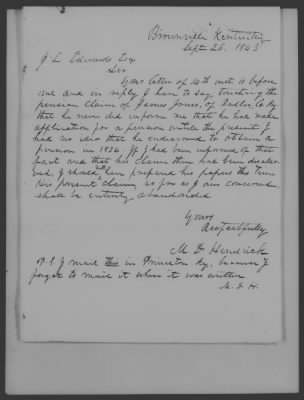 Brownville Kentucky
Sept 26. 1843
J L Edwards Esq
Sir
Your letter of 14th inst is before
me and in reply I have to say, touching the
pension claim of James Jones, of Butler, Co Ky
that he never did inform me that he had made
application for a pension until the present I
had no idea that he endeavored to obtain a
pension in 1834. If I had been informed of that
fact and that his claim then had been disallow
ed, I should have prepared his papers this time
His present claim, so far as I am concerned
shall be entirely abandoned
Yours
Respectfully
M D Hendrick
P.S. I mail this in Princeton Ky, because I
forgot to mail it when it was written
M. D. H.